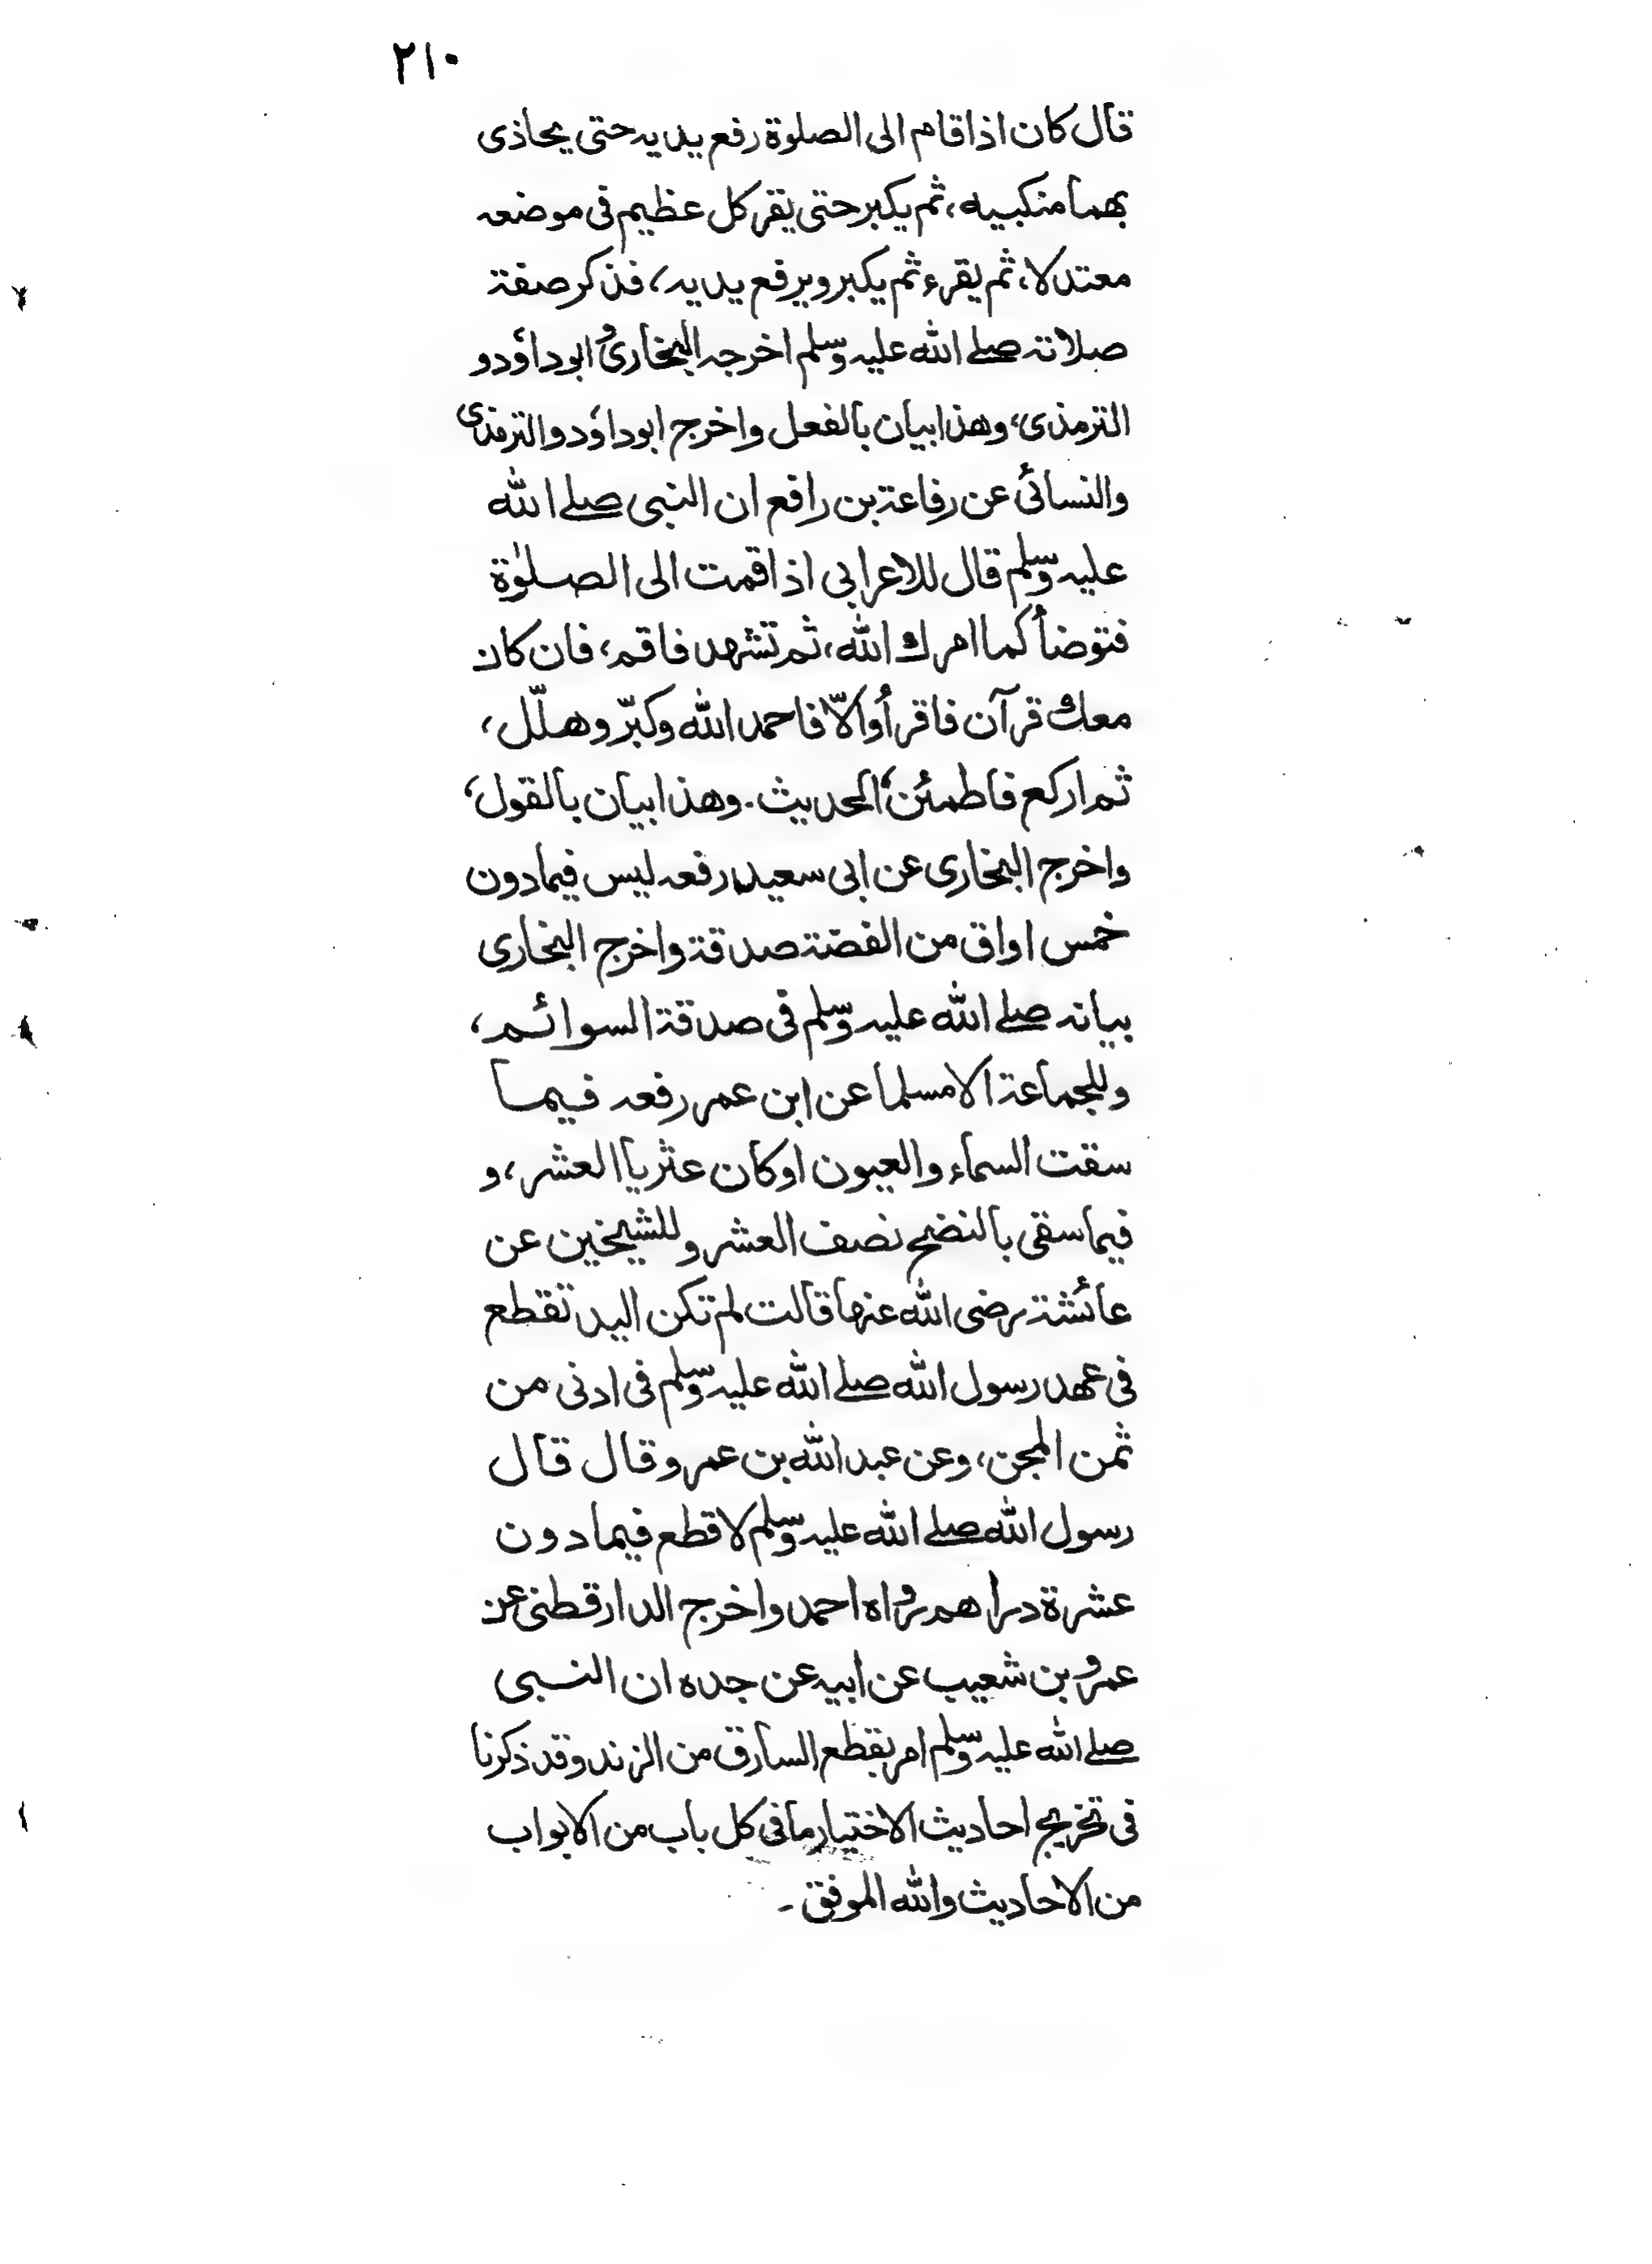 ٢١٠
قال كان اذا قام الى الصلوة رفع يديه حتى يحاذى
بهما منكبيه، ثم يكبر حتى يقر كل عظيم فى موضعه
معتدلا، ثم يقرء ثم يكبر ويرفع يديه، فذكر صفة
صلاته صلے الله عليه وسلم اخرجه البخارى و ابو داؤد و
الترمذى، وهذا بيان بالفعل واخرج ابو داؤد والترمذى
والنسائى عن رفاعة بن رافع ان النبى صلے الله
عليه وسلم قال للاعرابى اذا قمت الى الصلوٰة
فتوضأ كما امرك الله، ثم تشهد فاقم، فان كان
معك قرآن فاقرأ والّا فاحمد الله وكبّر وهلّل،
ثم اركع فاطمئن، الحديث. وهذا بيان بالقول،
واخرج البخارى عن ابى سعيد رفعه ليس فيما دون
خمس اواق من الفضة صدقة واخرج البخارى
بيانه صلے الله عليه وسلم فى صدقة السوائم،
وللجماعة الا مسلما عن ابن عمر رفعه فيما
سقت السماء والعيون او كان عثريا العشر، و
فيما سقى بالنضح نصف العشر وللشيخين عن
عائشة رضى الله عنها قالت لم تكن اليد تقطع
فى عهد رسول الله صلے الله عليه وسلم فى ادنى من
ثمن المجن، وعن عبد الله بن عمرو قال قال
رسول الله صلے الله عليه وسلم لا قطع فيما دون
عشرة دراهم رواه احمد واخرج الدارقطنى عن
عمرو بن شعيب عن ابيه عن جده ان النبى
صلے الله عليه وسلم امر بقطع السارق من الزند وقد ذكرنا
فى تخريج احاديث الاختيار ما فى كل باب من الابواب
من الاحاديث والله الموفق ـ